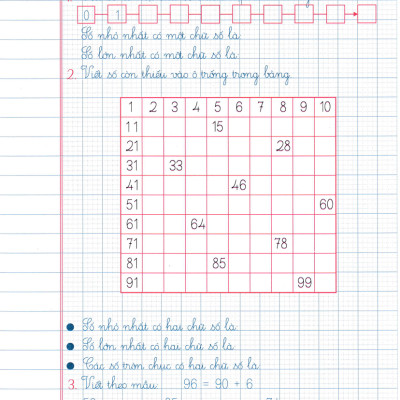 0 1
Số nhỏ nhất có một chữ số là
Số lớn nhất có một chữ số là
2. Viết số còn thiếu vào ô trống trong bảng
1 2 3 4 5 6 7 8 9 10
11 15
21 28
31 33
41 46
51 60
61 64
71 78
81 85
91 99
Số nhỏ nhất có hai chữ số là
Số lớn nhất có hai chữ số là
Các số tròn chục có hai chữ số là
3. Viết theo mẫu 96 = 90 + 6